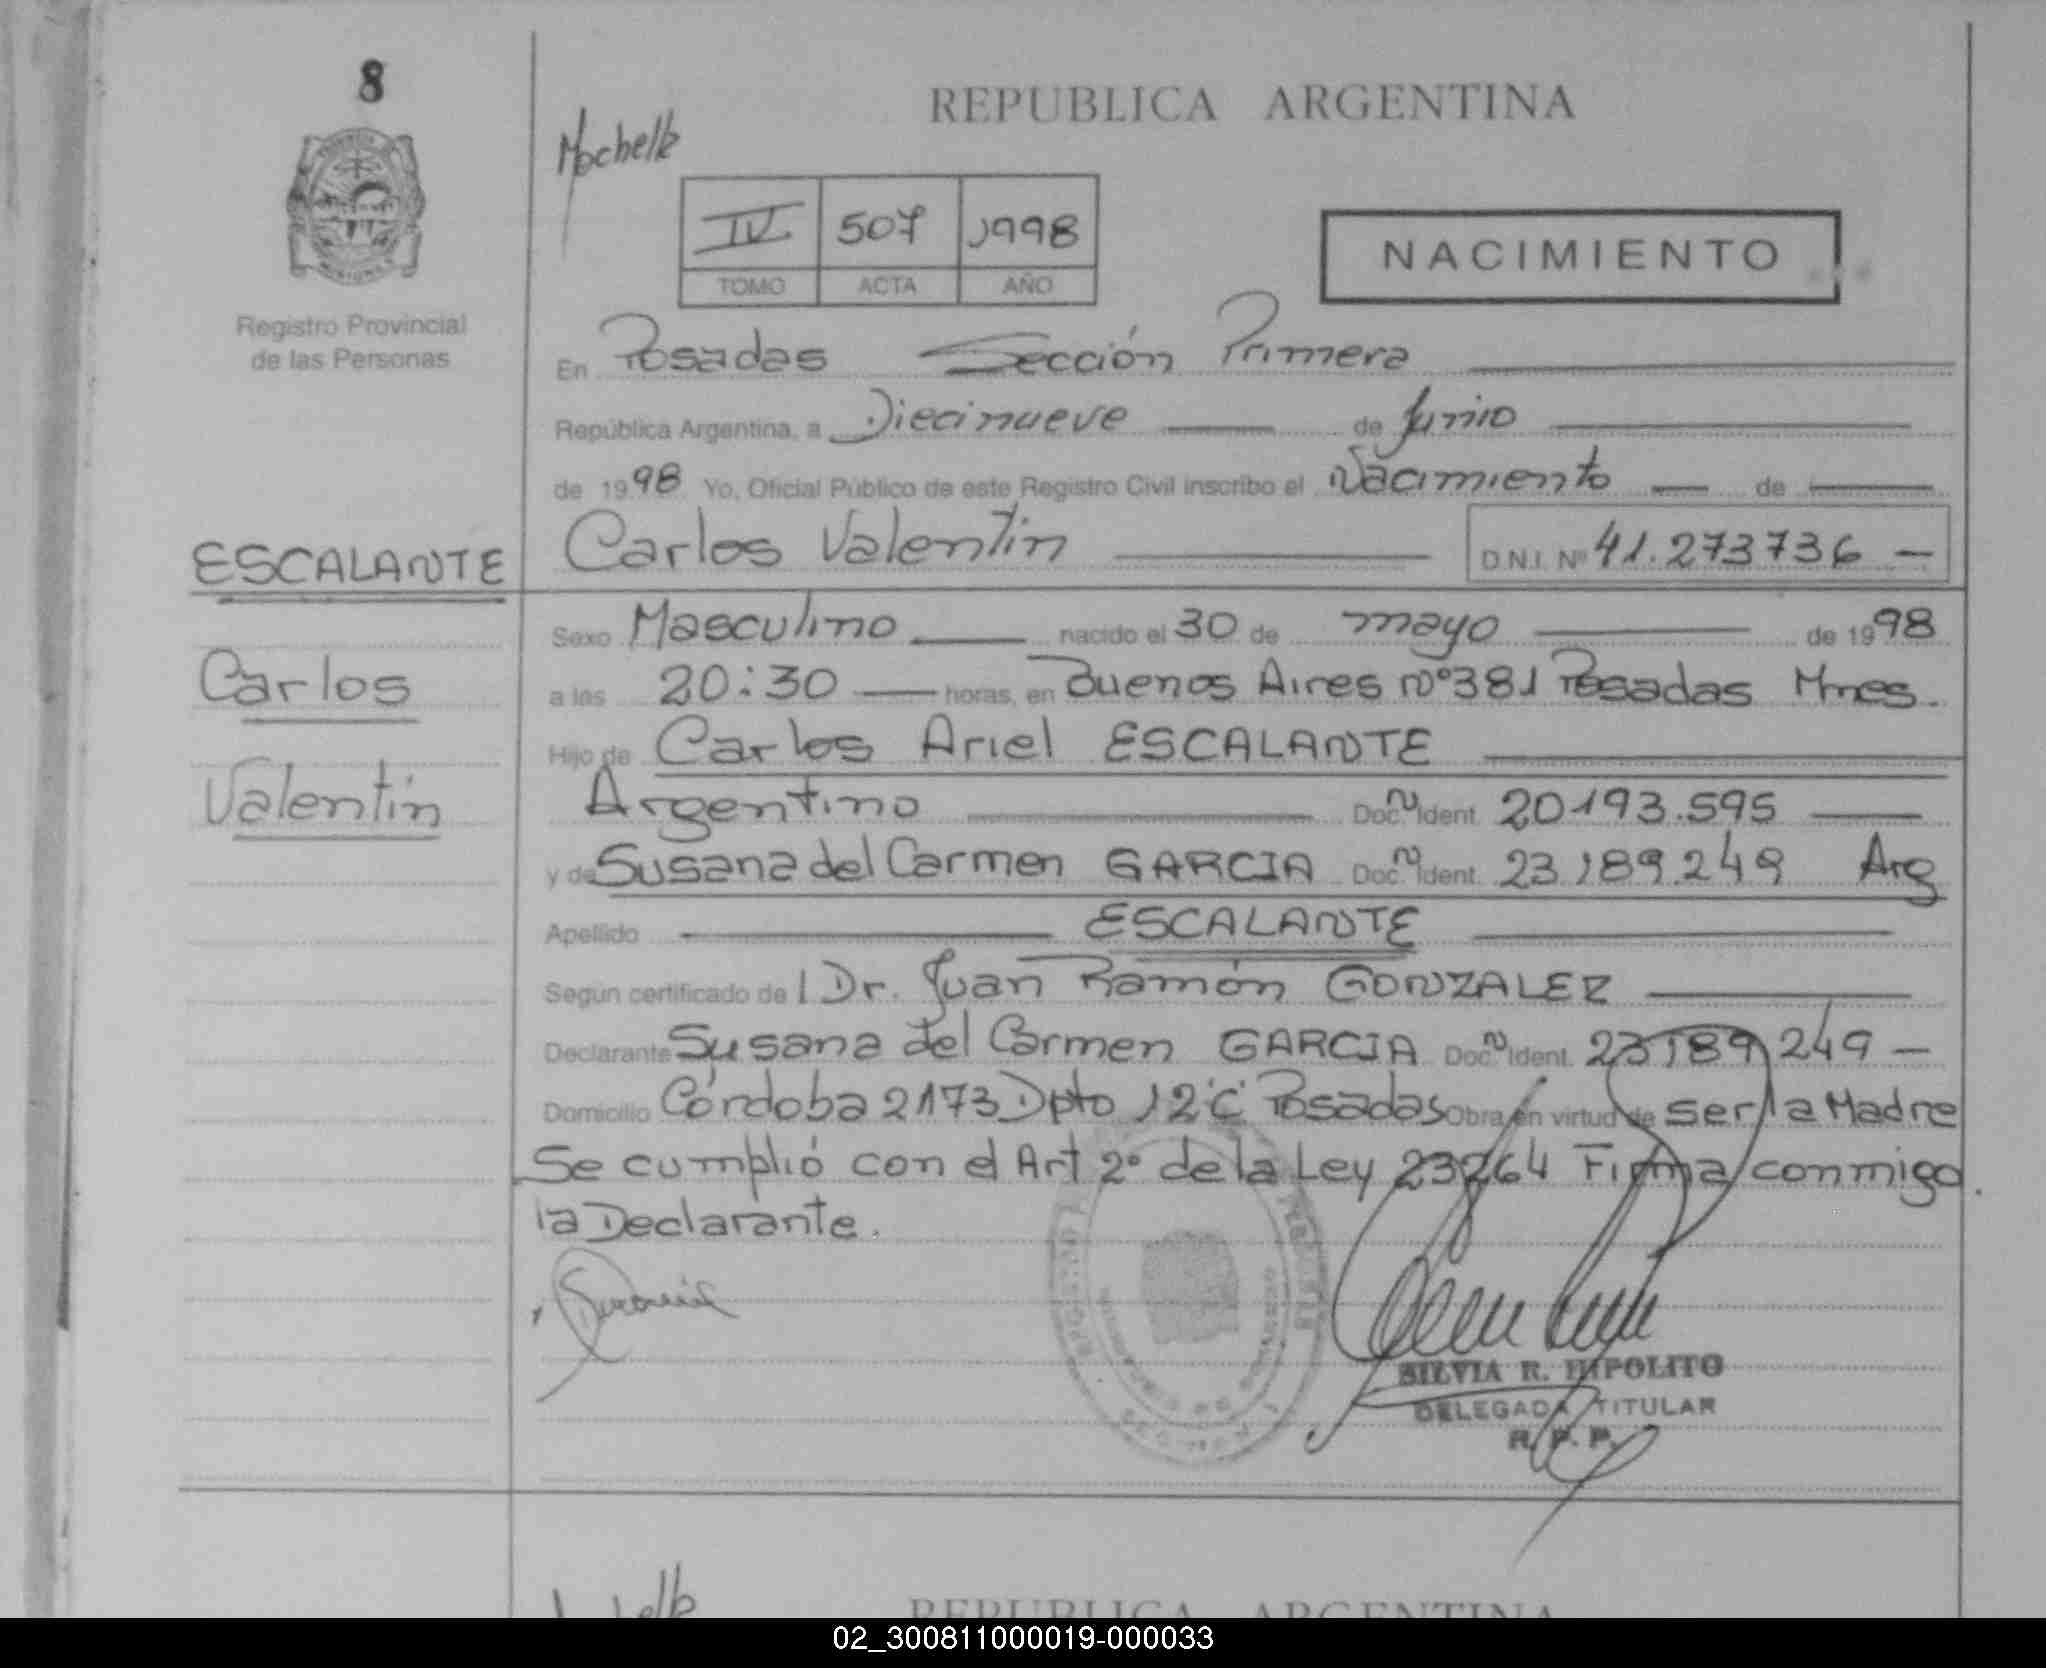 8
REPUBLICA ARGENTINA
IV 507 1998
TOMO ACTA AÑO
NACIMIENTO
Registro Provincial
de las Personas
En Posadas Sección Primera
República Argentina, a Diecinueve de Junio
de 1998 Yo, Oficial Público de este Registro Civil inscribo el Nacimiento de
ESCALANTE
Carlos Valentín D.N.I. Nº 41.273736
Sexo Masculino nacido el 30 de mayo de 1998
Carlos
a las 20:30 horas, en Buenos Aires Nº381 Posadas Mnes.
Hijo de Carlos Ariel ESCALANTE
Valentín
Argentino Doc. N Ident. 20193.595
y de Susana del Carmen GARCIA Doc. N Ident. 23.189.249 Arg
Apellido ESCALANTE
Según certificado de l Dr. Juan Ramón GONZALEZ
Declarante Susana del Carmen GARCIA Doc. N Ident. 23189249
Domicilio Córdoba 2173 Dpto 12 "C" Posadas Obra en virtud de ser la Madre
Se cumplió con el Art 2º de la Ley 23264 Firma conmigo
la Declarante.
SILVIA R. HIPOLITO
DELEGADA TITULAR
R. P. P.
REPUBLICA ARGENTINA
02_300811000019-000033